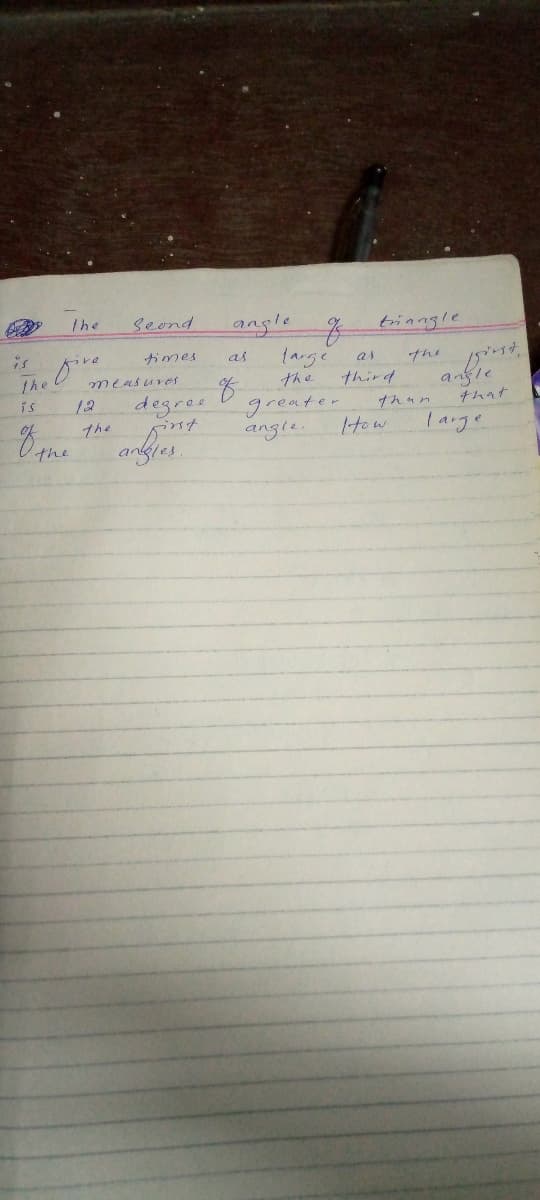 The Seond angle of triangle
is five times as large as the first.
The measures of the third angle
is 12 degree greater than that
of the first angle. How large
the angles.